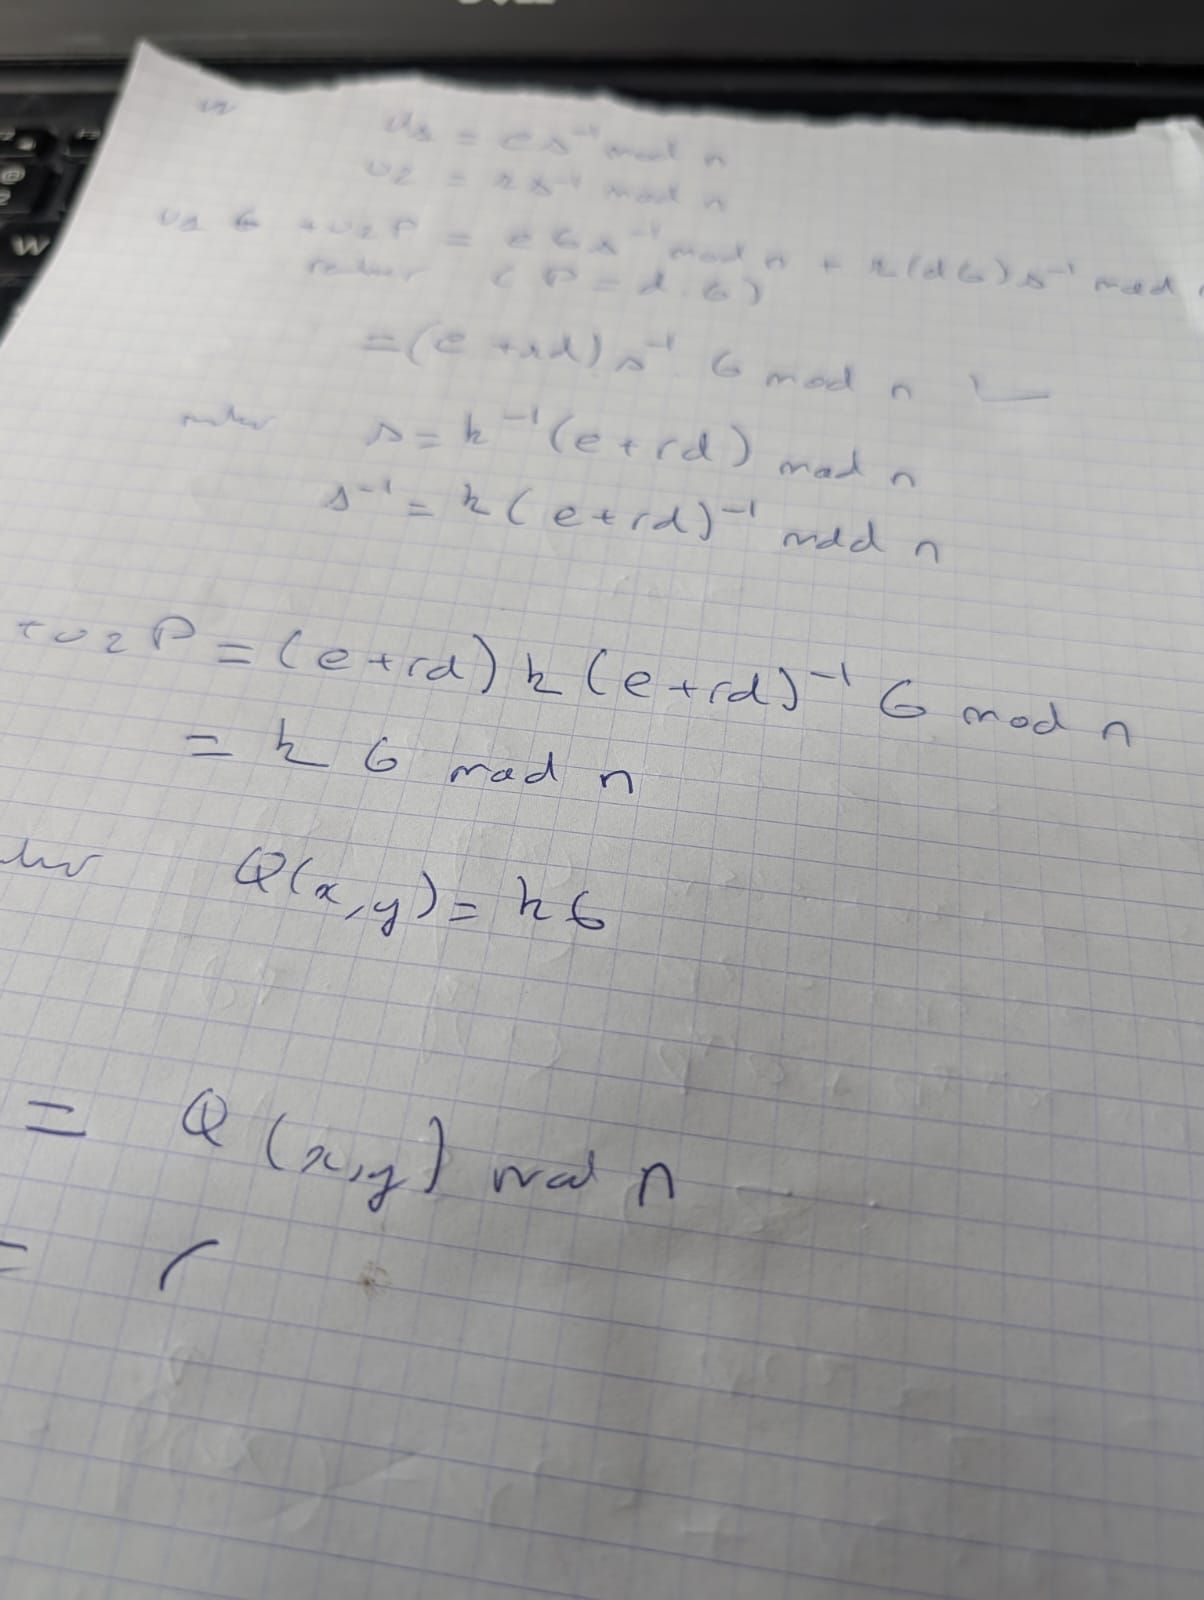 u1 = es⁻¹ mod n
u2 = rs⁻¹ mod n
u1 G + u2 P = e G s⁻¹ mod n + r(dG) s⁻¹ mod
( P = d . G )
= (e + rd) s⁻¹ G mod n
s = k⁻¹ (e + rd) mod n
s⁻¹ = k (e + rd)⁻¹ mod n
+ u2 P = (e + rd) k (e + rd)⁻¹ G mod n
= k G mod n
Q(x,y) = kG
= Q (x,y) mod n
= r